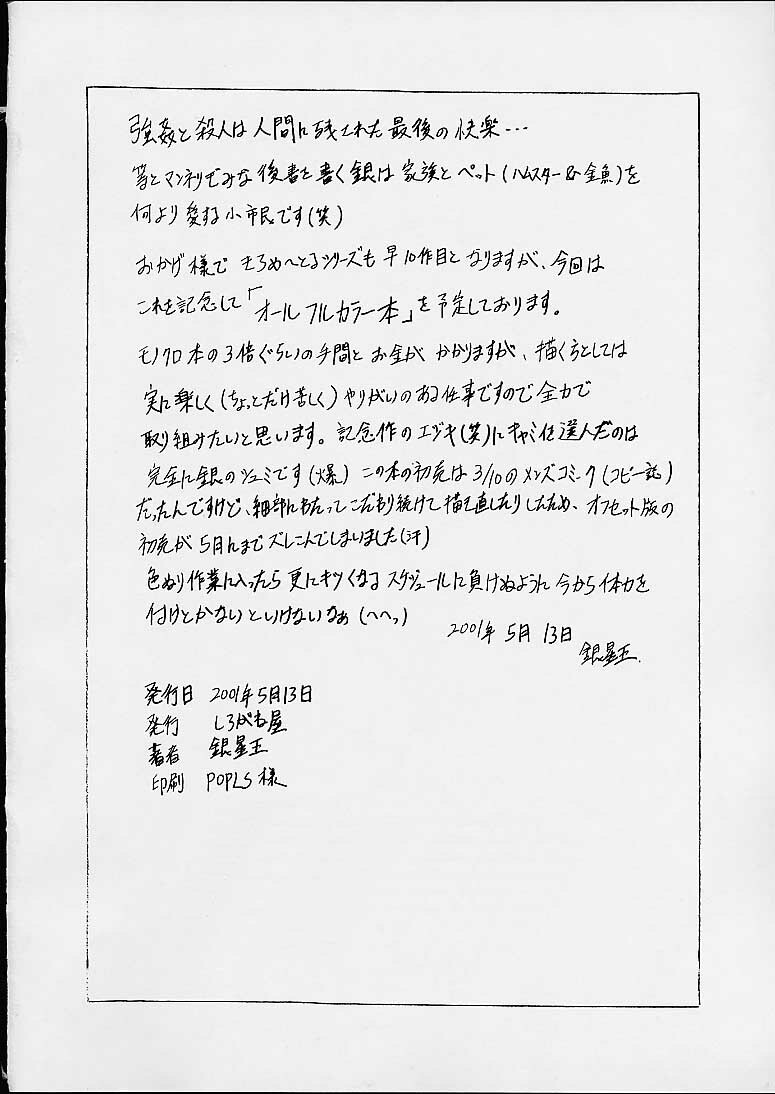 強姦と殺人は人間に残された最後の快楽…
等とマンネリぎみな後書を書く銀は家族とペット(ハムスター&金魚)を
何より愛する小市民です(笑)
おかげ様で まろめーとるシリーズも早10作目となりますが、今回は
これを記念して「オールフルカラー本」を予定しております。
モノクロ本の3倍ぐらいの手間とお金がかかりますが、描く方としては
実に楽しく(ちょっとだけ苦しく)やりがいのある仕事ですので全力で
取り組みたいと思います。記念作のエジキ(笑)にキャミィを選んだのは
完全に銀のシュミです(爆) この本の初売は3/10のメンズコミーク(コピー誌)
だったんですけど、細部にわたってこだわり続けて描き直したりしたため、オフセット版の
初売が5月にまでズレこんでしまいました(汗)
色ぬり作業に入ったら更にキツくなるスケジュールに負けぬように今から体力を
付けとかないといけないなぁ(へへっ)
2001年 5月 13日
銀星王.
発行日 2001年5月13日
発行 しろがね屋
著者 銀星王
印刷 POPLS様